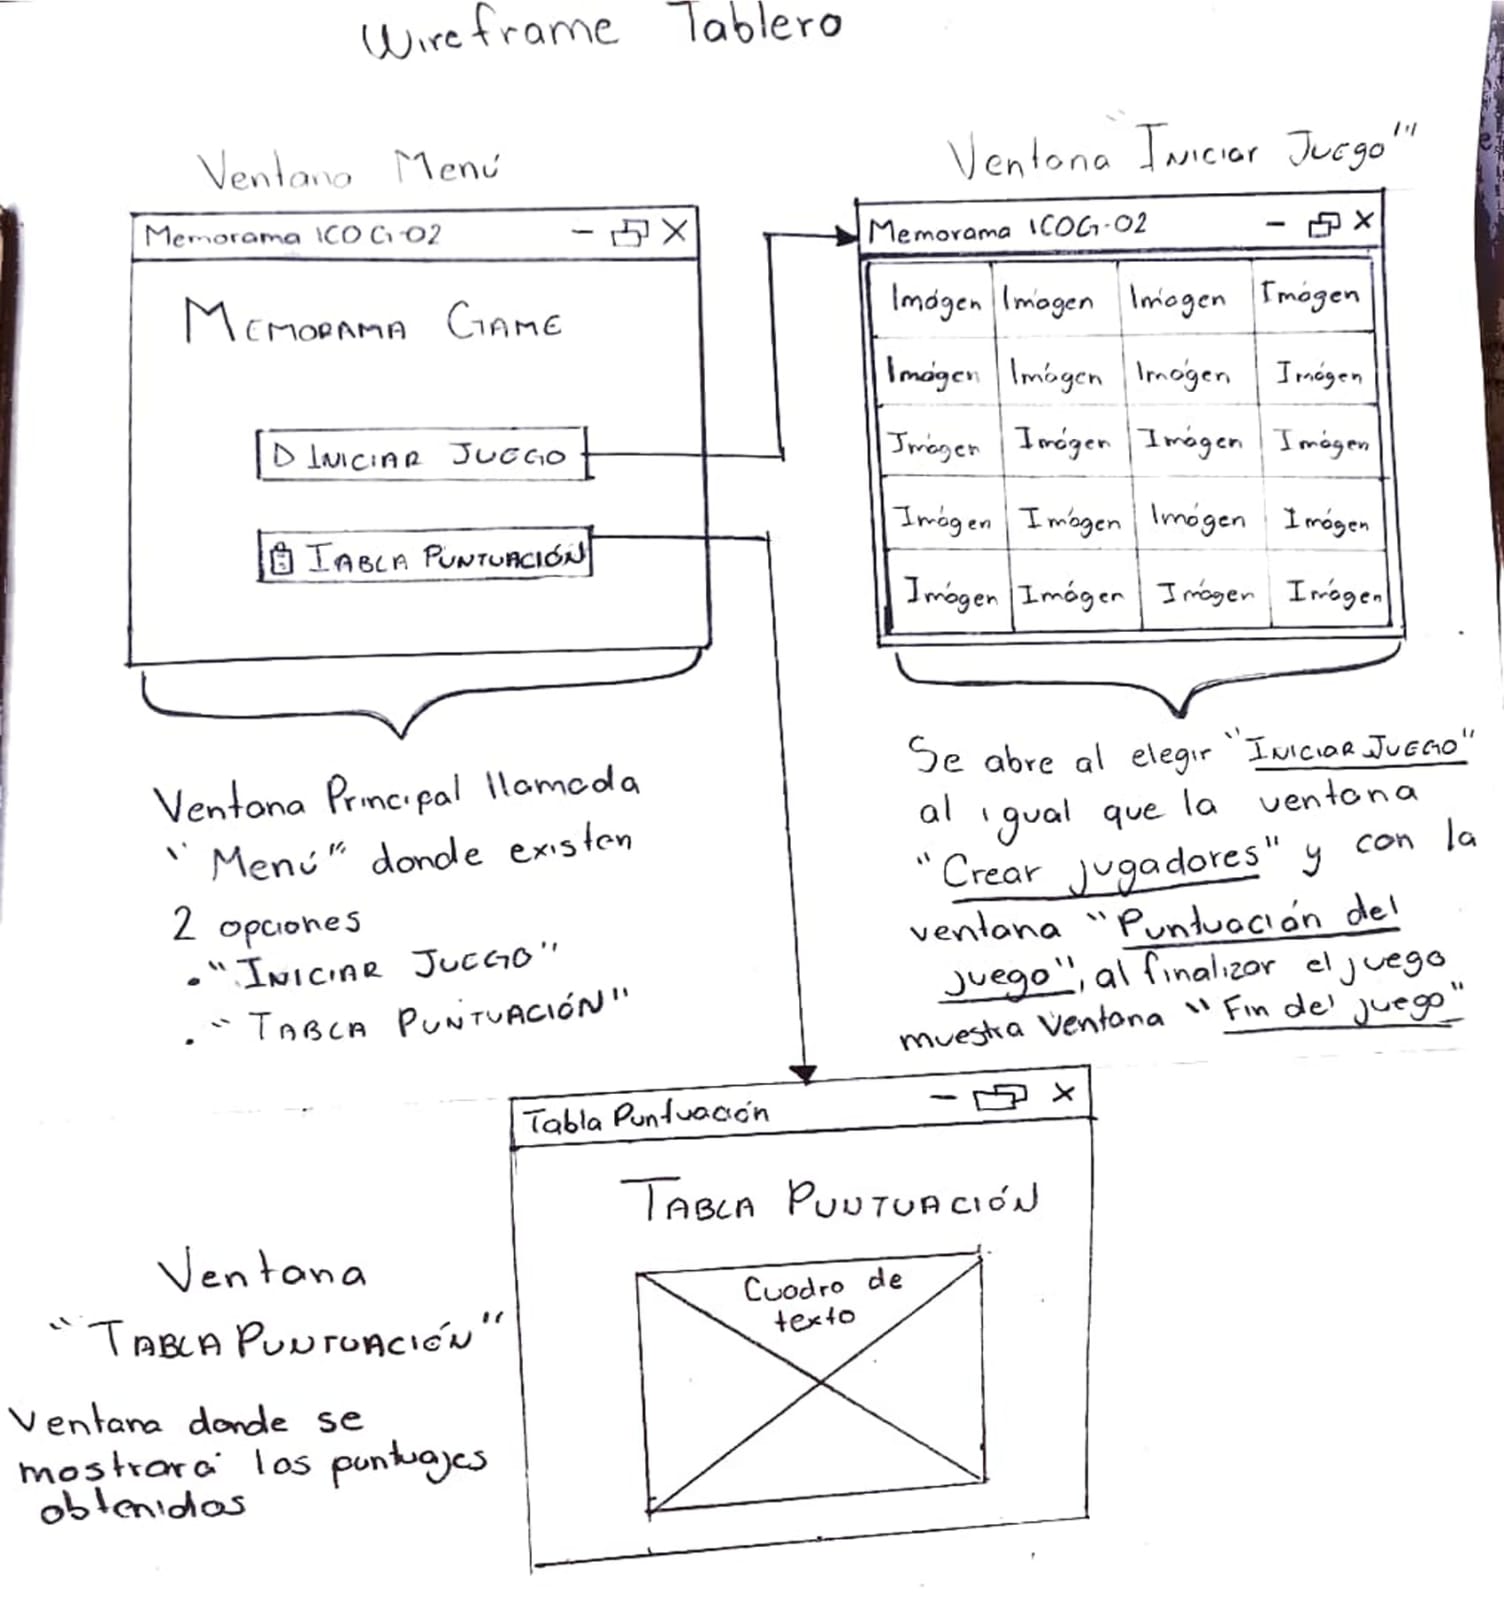 Wireframe Tablero
Ventana Menú
Memorama ICOG-02
MEMORAMA GAME
INICIAR JUEGO
TABLA PUNTUACIÓN
Ventana Principal llamada
"Menú" donde existen
2 opciones
."INICIAR JUEGO"
."TABLA PUNTUACIÓN"
Ventana "Iniciar Juego"
Memorama ICOG-02
Imágen Imágen Imágen Imágen
Imágen Imágen Imágen Imágen
Imágen Imágen Imágen Imágen
Imágen Imágen Imágen Imágen
Imágen Imágen Imágen Imágen
Se abre al elegir "INICIAR JUEGO"
al igual que la ventana
"Crear jugadores" y con la
ventana "Puntuación del
juego", al finalizar el juego
muestra Ventana "Fin del juego"
Tabla Puntuación
TABLA PUNTUACIÓN
Cuadro de
texto
Ventana
"TABLA PUNTUACIÓN"
Ventana donde se
mostrará los puntajes
obtenidos